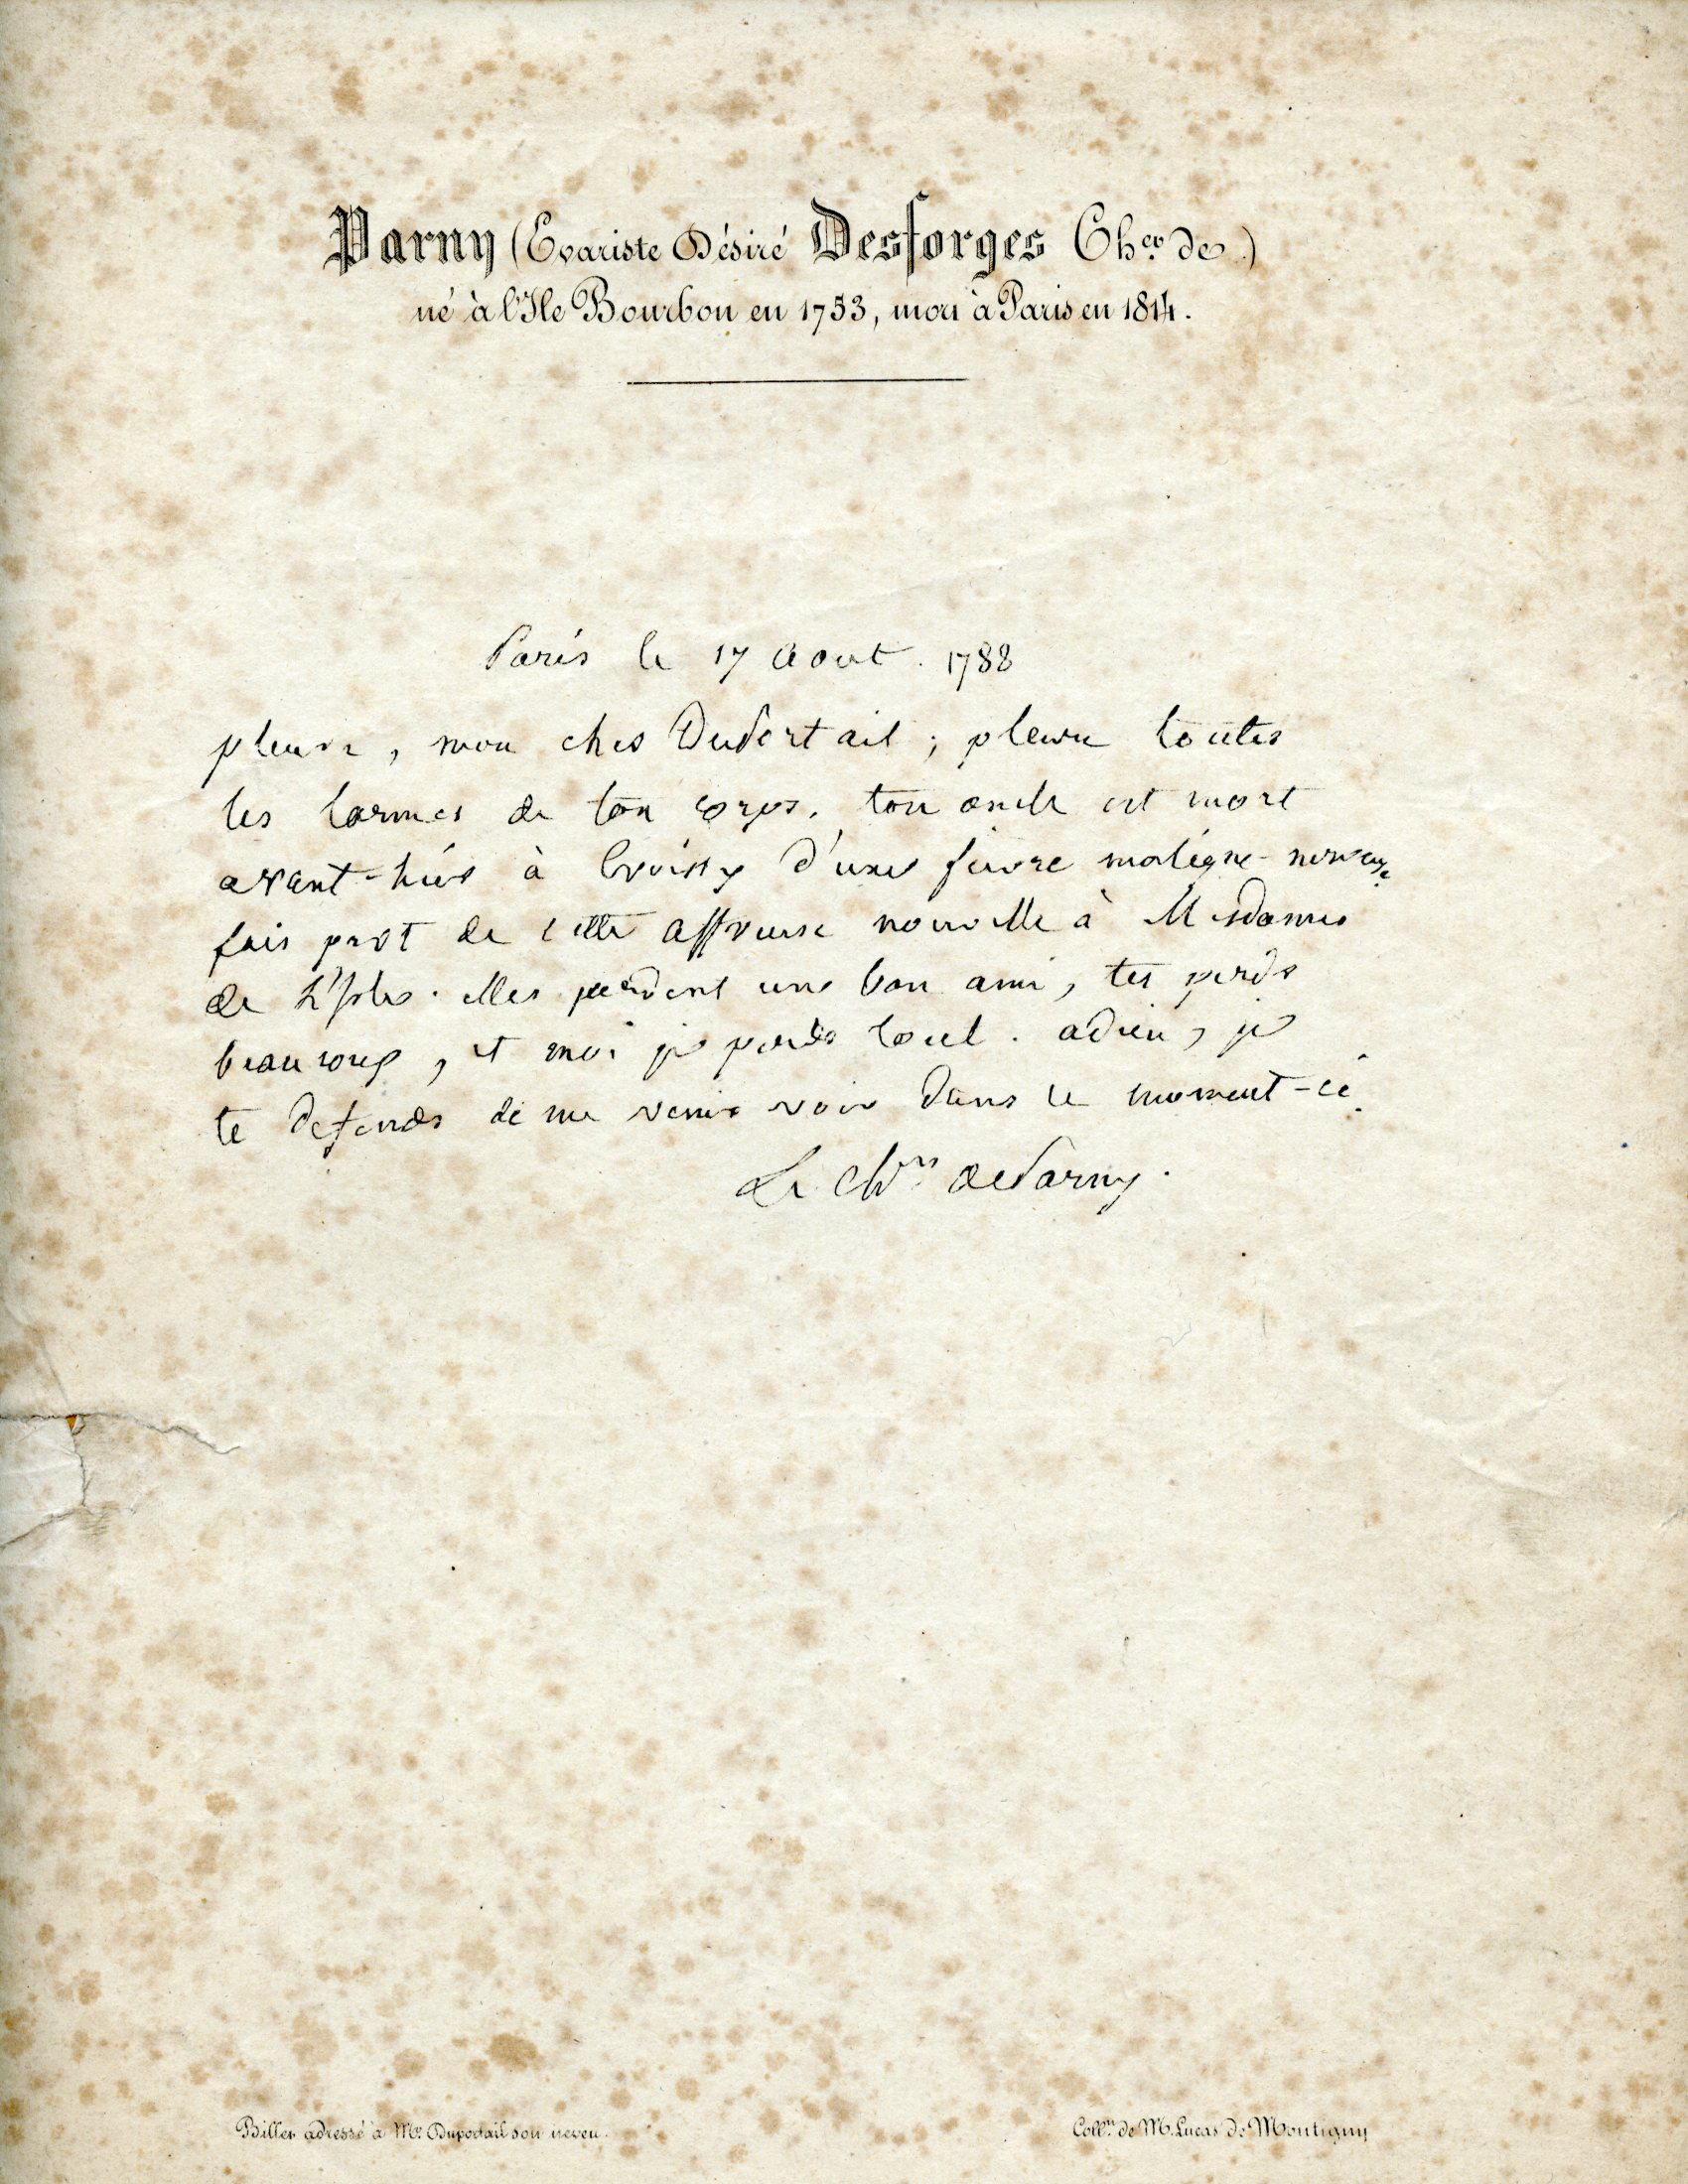 Parny (Evariste Désiré Desforges Cher. de)
né à l'Ile Bourbon en 1753, mort à Paris en 1814.
Paris le 17 Aout. 1788
pleure, mon cher Duportail; pleure toutes
les larmes de ton corps. ton oncle est mort
avant-hier à Croissy d'une fievre maligne-nerveuse.
fais part de cette affreuse nouvelle à Mesdames
de elles perdent un bon ami, tu perds
beaucoup, et moi je perds tout. adieu, je
te defends de me venir voir dans ce moment-ci.
Le chr. de Parny.
Billet adressé à Mr. Duportail son neveu.
Colln. de M. Lucas de Montigny